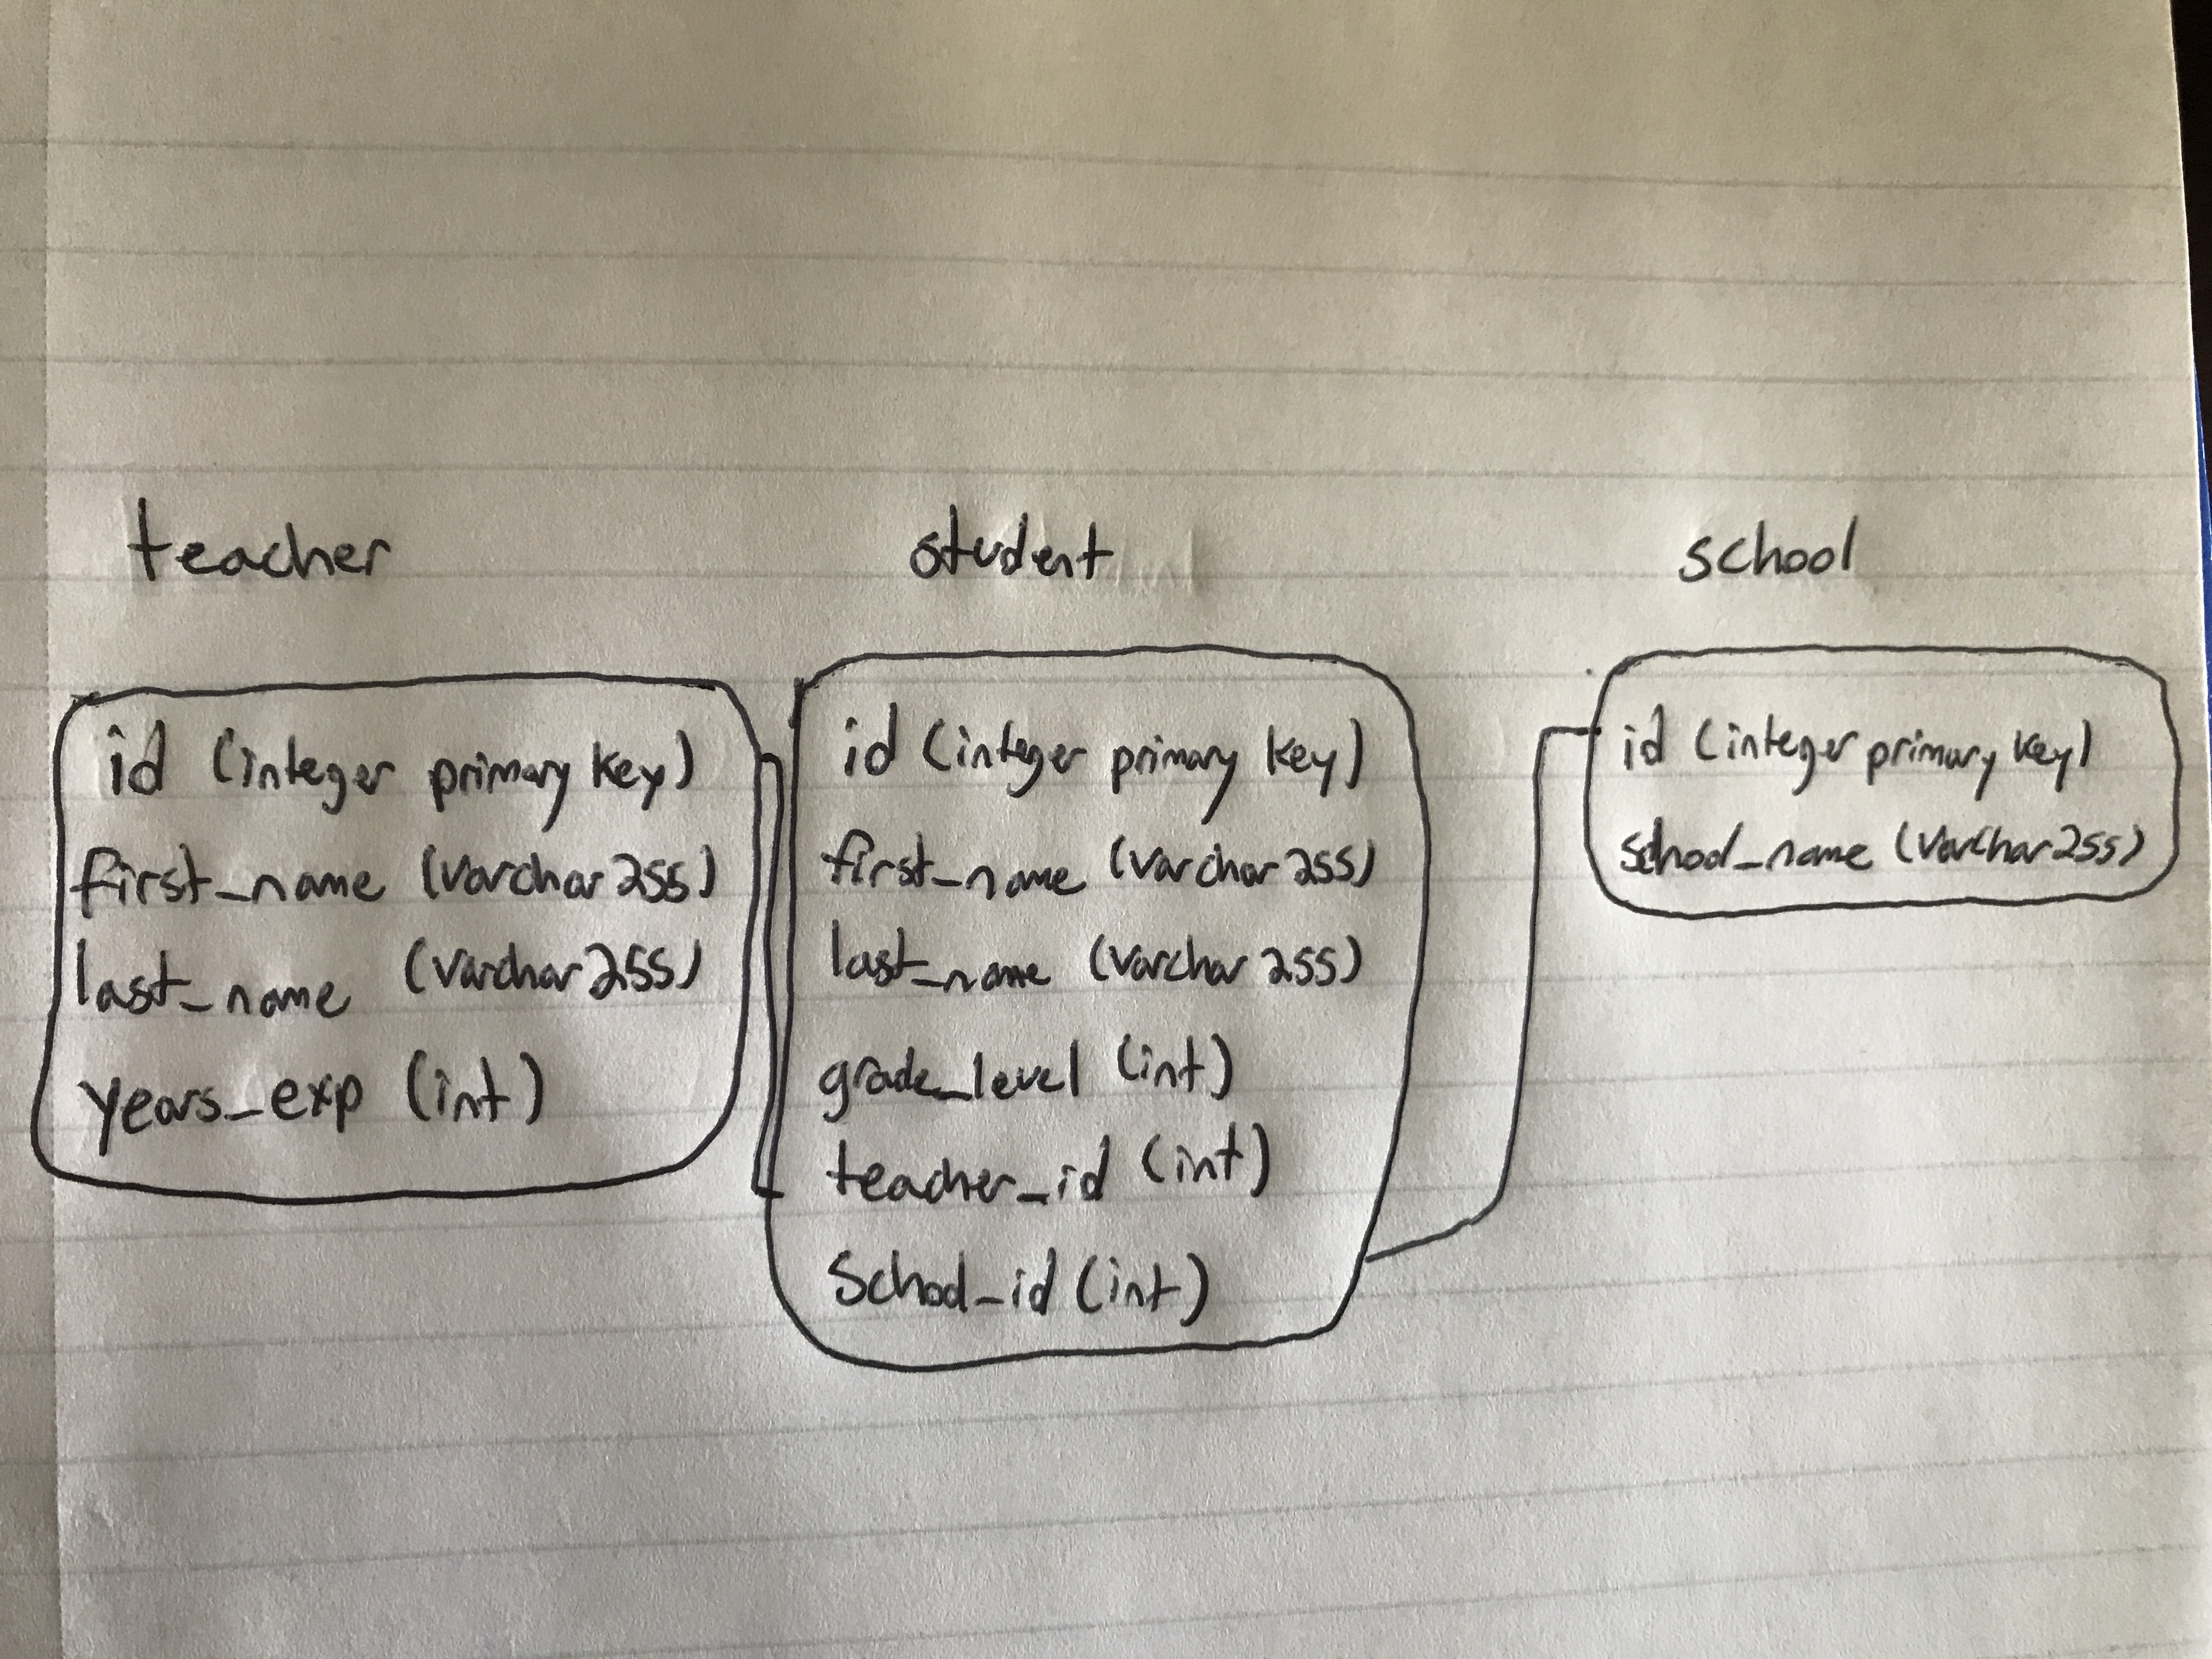 teacher
id (integer primary key)
first_name (varchar 255)
last_name (varchar 255)
years_exp (int)
student
id (integer primary key)
first_name (varchar 255)
last_name (varchar 255)
grade_level (int)
teacher_id (int)
School_id (int)
school
id (integer primary key)
school_name (varchar 255)